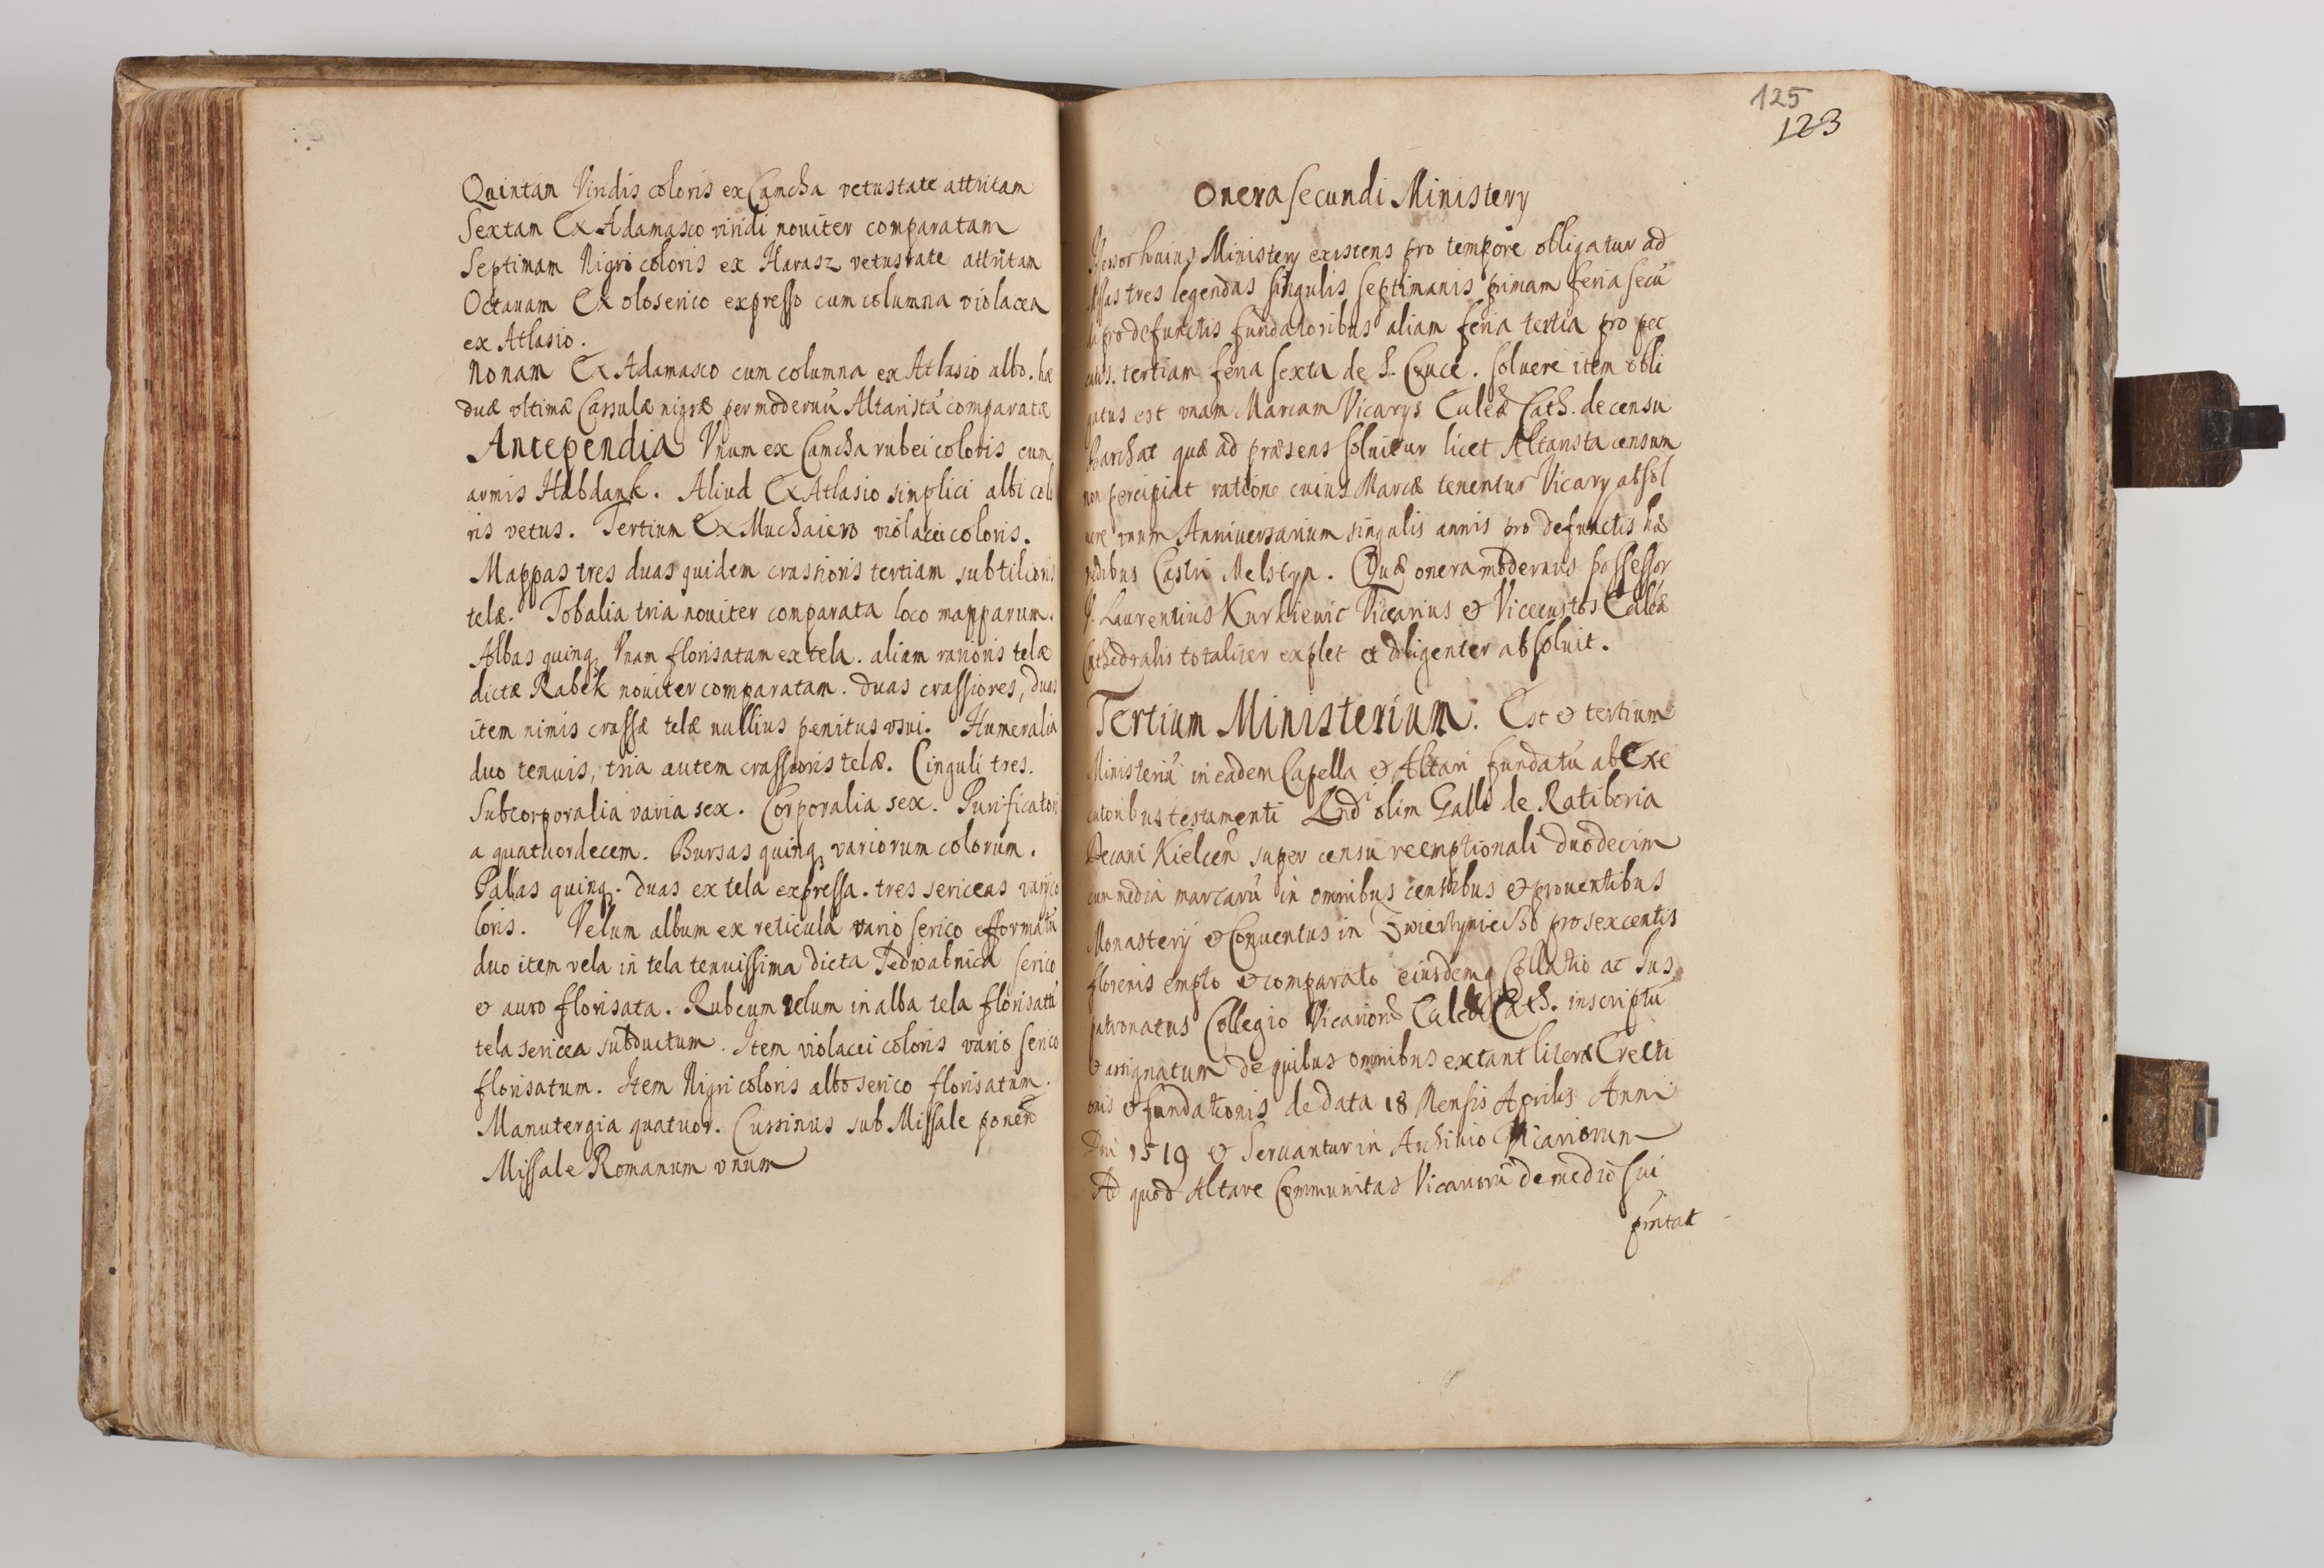 Quintam Viridis coloris ex Camcha vetustate attritam
Sextam Ex Adamasco viridi nouiter comparatam
Septimam Nigri coloris ex Harasz vetustate attritam
Octauam Ex oloserico expresso cum columna violacea
ex Atlasio.
Nonam Ex Adamasco cum columna ex Atlasio albo. hæ
duæ vltimæ Cassulæ nigræ per modernū Altaristā comparatæ
Antependia Vnum ex Camcha rubei coloris cum
armis Habdank. Aliud Ex Atlasio simplici albi colo
ris vetus. Tertium Ex Muchaiero violacei coloris.
Mappas tres duas quidem crassioris tertiam subtilioris
telæ. Tobalia tria nouiter comparata loco mapparum.
Albas quinq Vnam florisatam ex tela. aliam rarioris telæ
dictæ Rabek nouiter comparatam. duas crassiores, duas
item nimis crassæ telæ nullius penitus vsui. Humeralia
duo tenuis, tria autem crassioris telæ. Cinguli tres.
Subcorporalia varia sex. Corporalia sex. Purificatori
a quatuordecem. Bursas quinq variorum colorum.
Pallas quinq. duas ex tela expressa. tres sericeas varij co
loris. Velum album ex reticula vario serico efformatū
duo item vela in tela tenuissima dicta Jedwabnica serico
et auro florisata. Rubeum velum in alba tela florisatū
tela sericea subductum. Item violacei coloris vario serico
florisatum. Item Nigri coloris albo serico florisatum.
Manutergia quatuor. Cussinus sub Missale ponend
Missale Romanum vnum
125
123
Onera secundi Ministery
huius Ministery existens pro tempore obligatur ad
tres legendas singulis septimanis primam feria secū
pro defunctis fundatoribus aliam feria tertia pro pec
tertiam feria sexta de S. Cruce. soluere item obli
gatus est vnam Marcam Vicarys Eccleæ Cath. de censu
quæ ad præsens soluitur licet Altarista censum
non percipiat ratione cuius Marcæ tenentur Vicary absol
uere vnum Anniuersarium singulis annis pro defunctis hæ
redibus Castri Melstyn. Quæ onera modernus possessor
Laurentius Kurkiewic Vicarius et Vicecustos Eccleæ
Cathedralis totaliter explet et diligenter absoluit.
Tertium Ministerium. Est et tertium
Ministeriū in eadem Capella et Altari fundatū ab Exe
cutoribus testamenti Rndi olim Galli de Ratiboria
Decani Kielceñ super censu reemptionali duodecim
cum media marcarū in omnibus censibus et prouentibus
Monastery et Conuentus in Zwierzyniec pro sexcentis
florenis empto et comparato eiusdemq Collatio ac Jus
patronatus Collegio Vicariorū Eccleæ Cath. inscriptū
et assignatum de quibus omnibus extant literæ Erecti
onis et fundationis de data 18 Mensis Aprilis Anni
Dni 1519 et seruantur in Archiuio Vicariorum
Ad quod Altare Communitas Vicariorū de medio sui
pñtat